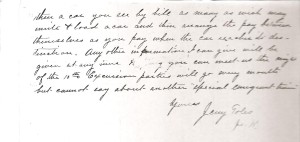 then a car you can by bill as many as wish may
unite & load a car and then arrange the pay between
themselves as you pay when the car reaches its des-
tination. Any other information I can give will be
given at any time
you can meet us then
of the 10th Excursion parties will go every month
but cannot say about another "special emigrant train"
Yours
Jerry